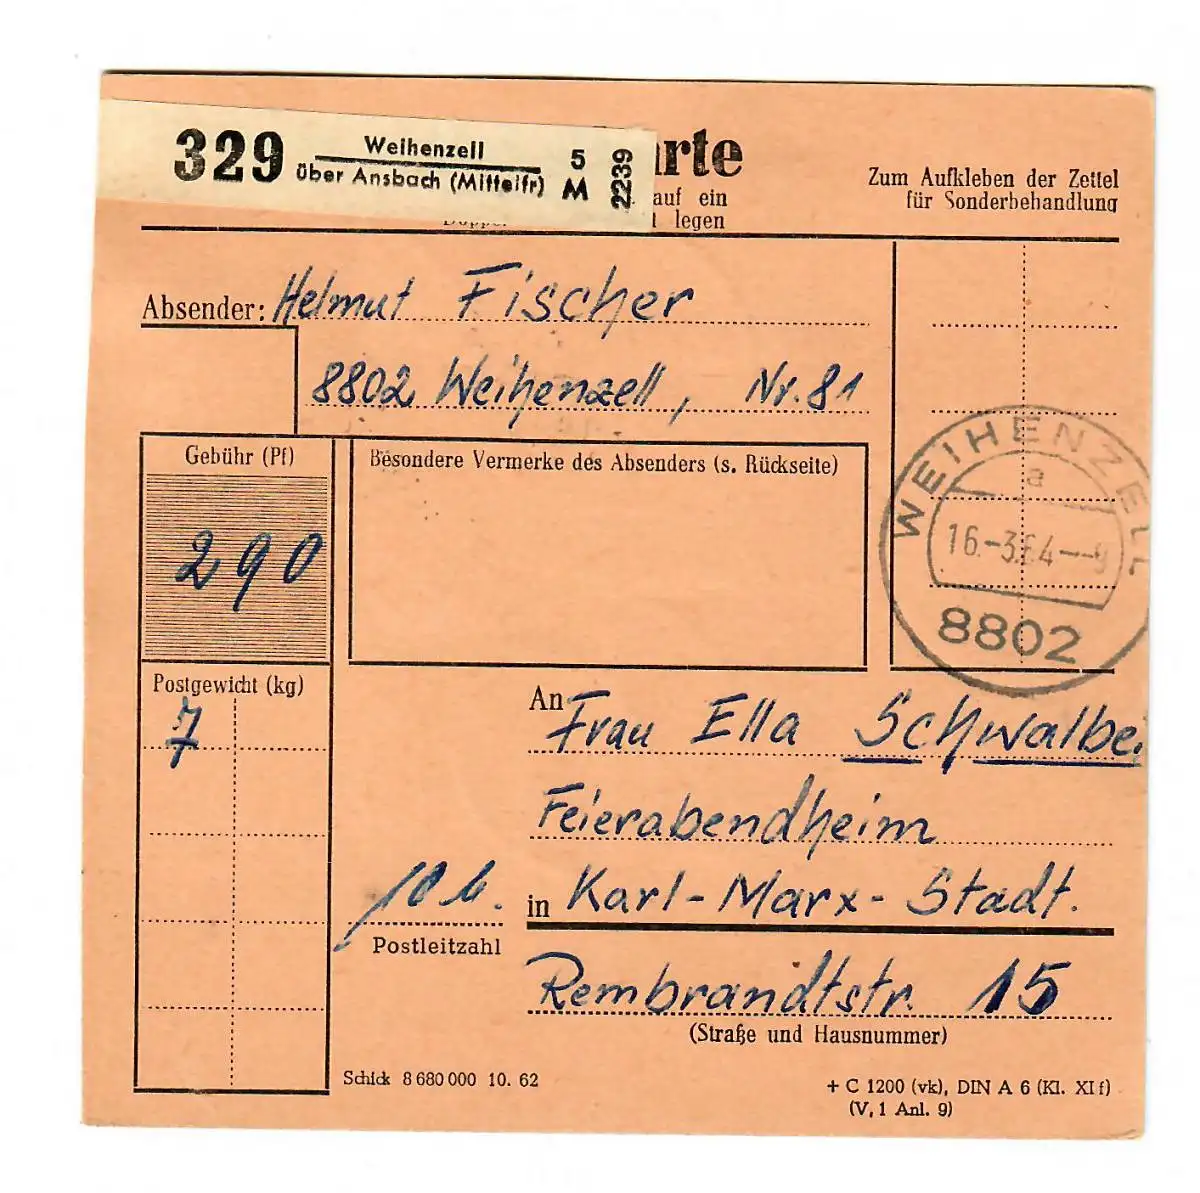 329 Weihenzell 5 2239
über Ansbach (Mittelfr) M
arte
auf ein
legen
Zum Aufkleben der Zettel
für Sonderbehandlung
Absender: Helmut Fischer
8802 Weihenzell, Nr. 81
Gebühr (Pf)
290
Besondere Vermerke des Absenders (s. Rückseite)
WEIHENZELL
a
16.-3.64--9
8802
Postgewicht (kg)
7
An Frau Ella Schwalbe,
Feierabendheim
Postleitzahl
in Karl-Marx-Stadt.
Rembrandtstr. 15
(Straße und Hausnummer)
Schick 8 680 000 10. 62
+ C 1200 (vk), DIN A 6 (Kl. XI f)
(V, 1 Anl. 9)